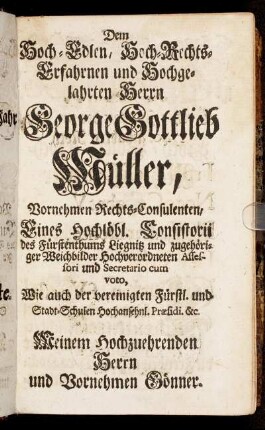 Dem
Hoch-Edlen, Hoch-Rechts-
Erfahrnen und Hochge-
lahrten Herrn
George Gottlieb
Müller,
Vornehmen Rechts-Consulenten,
Eines Hochlöbl. Consistorii
des Fürstenthums Liegnitz und zugehöri-
ger Weichbilder Hochverordneten Asses-
sori und Secretario cum
voto,
Wie auch der vereinigten Fürstl. und
Stadt-Schulen Hochansehnl. Præsidi. &c.
Meinem Hochzuehrenden
Herrn
und Vornehmen Gönner.